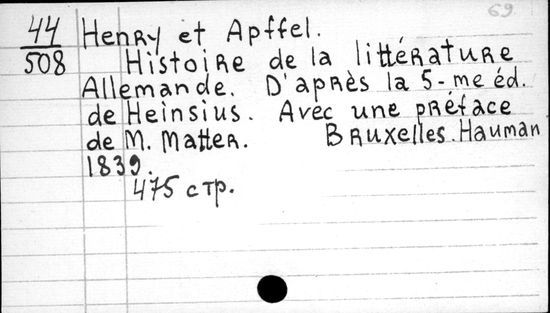 69
44 Henry et Apffel.
508 Histoire de la littérature
Allemande. D'après la 5-me éd.
de Heinsius. Avec une préface
de M. Matter. Bruxelles. Hauman
1839.
475 стр.